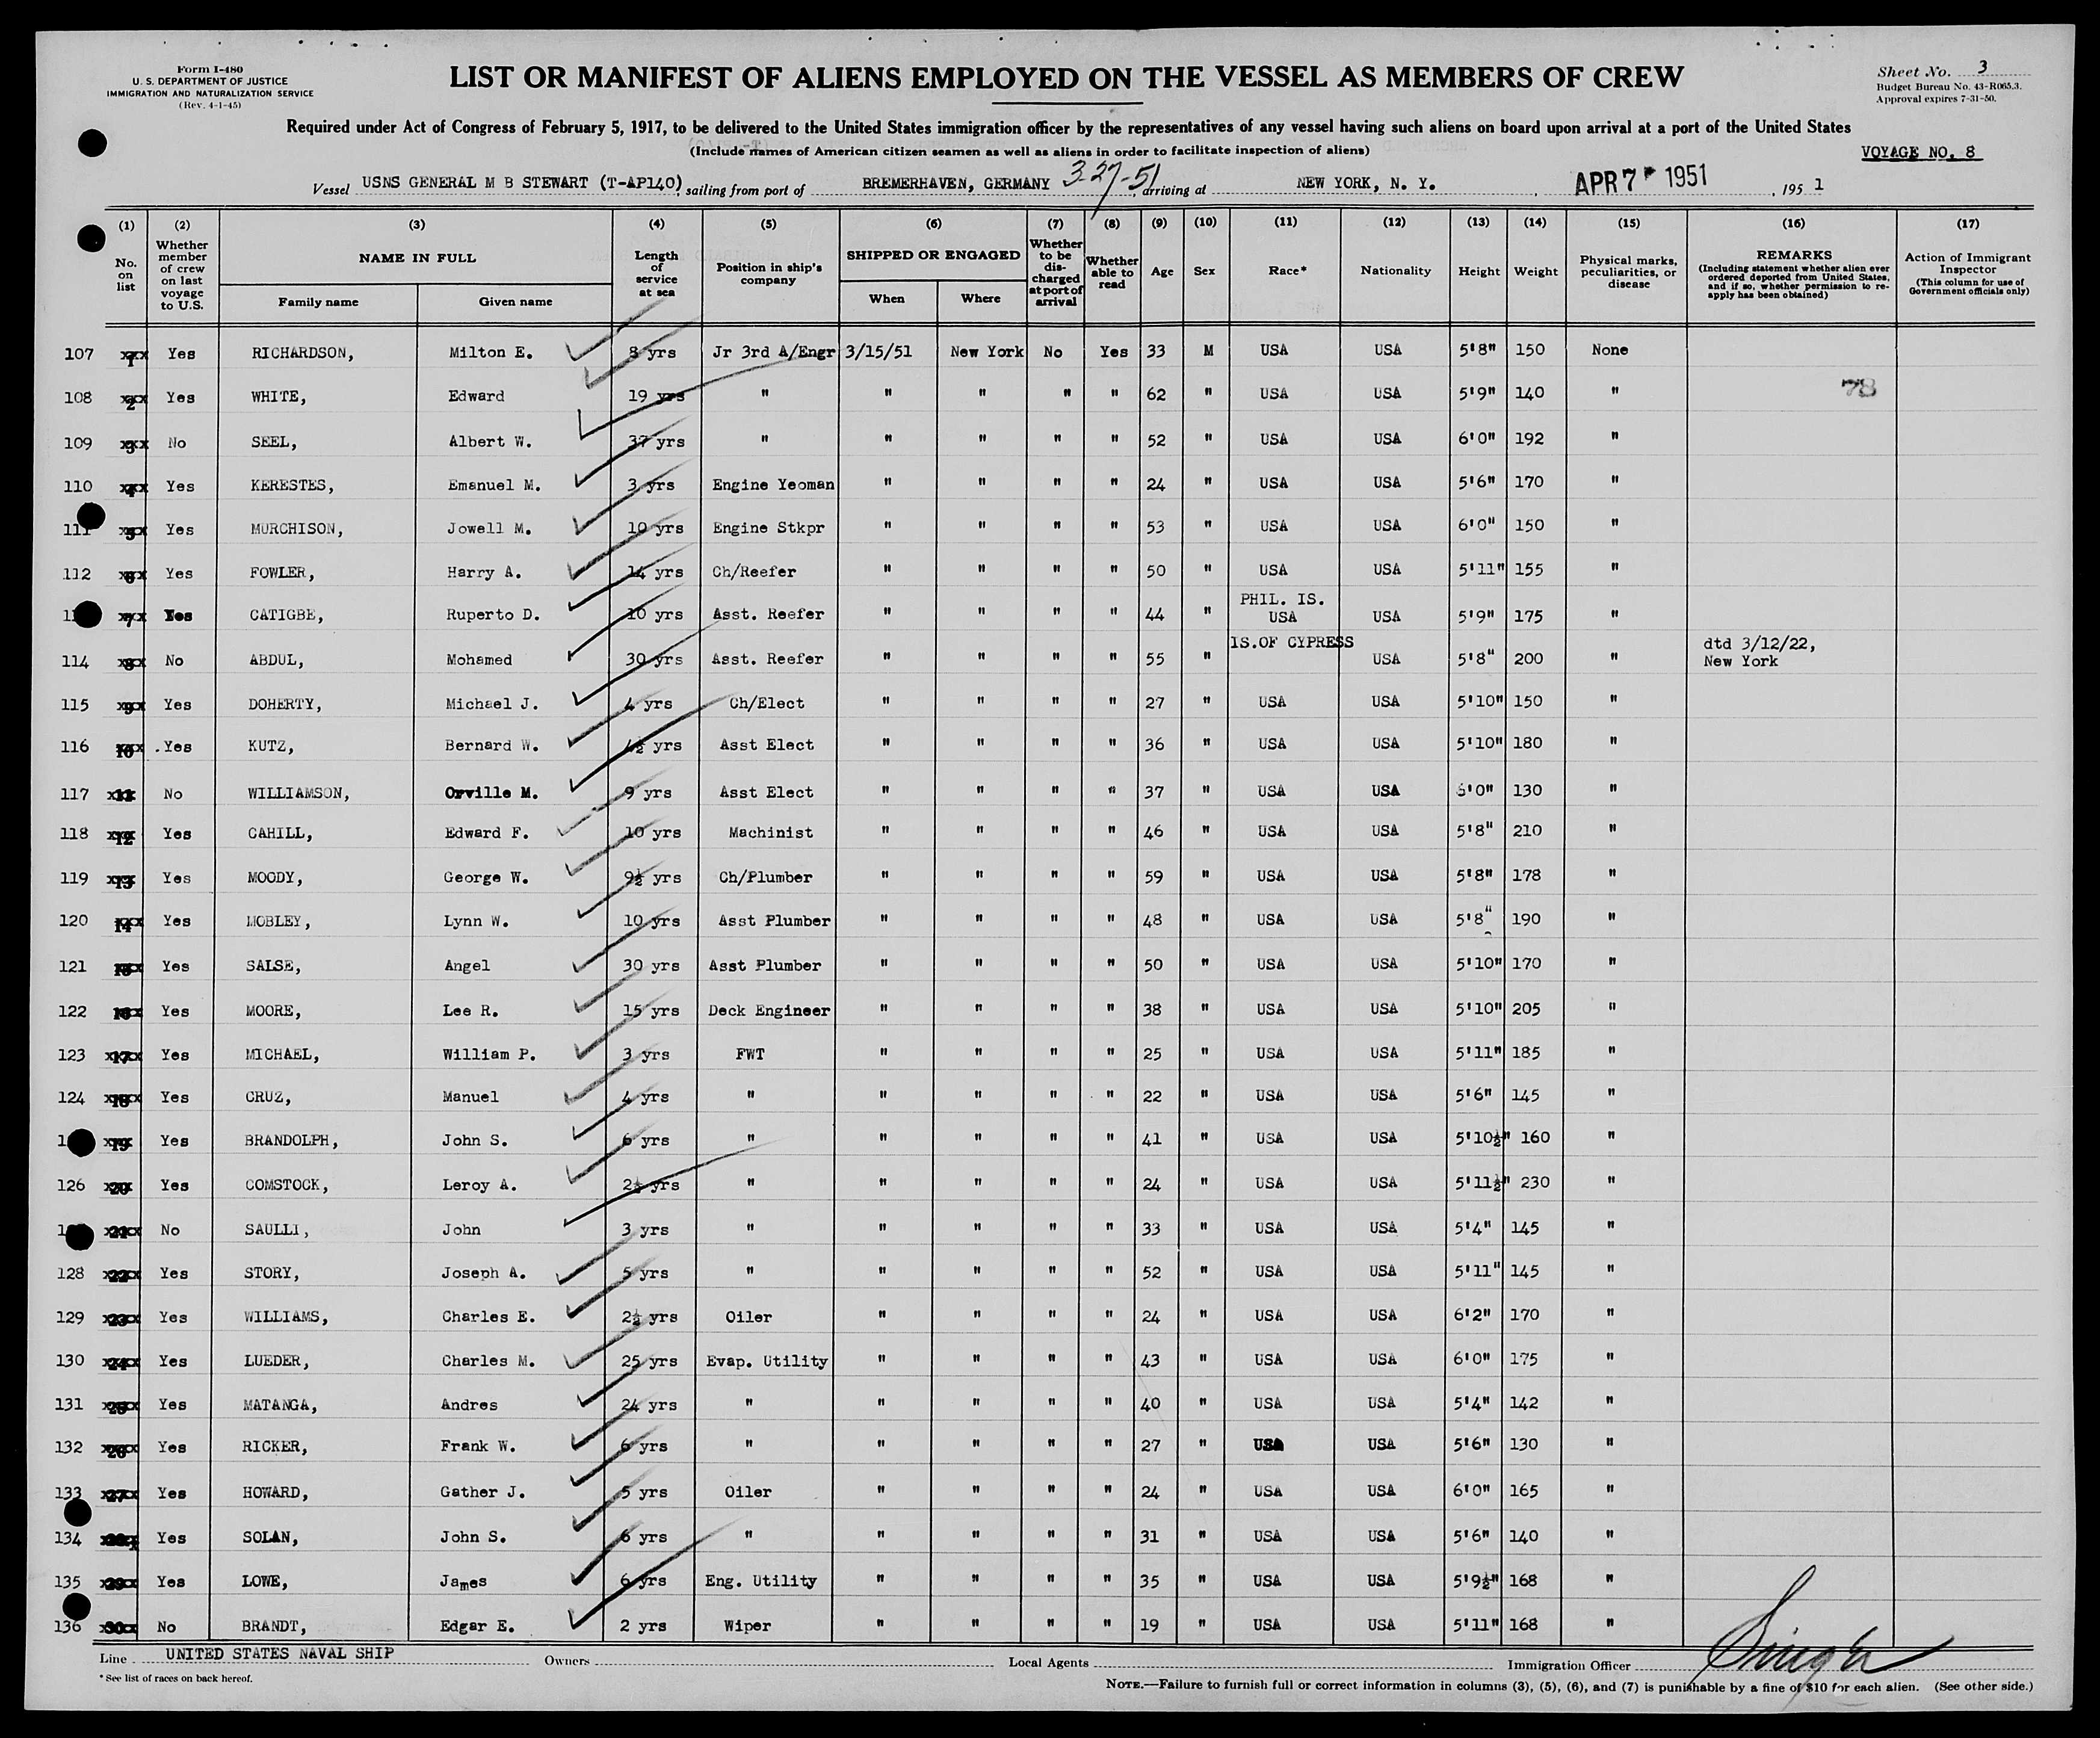 Form I-480
U. S. DEPARTMENT OF JUSTICE
IMMIGRATION AND NATURALIZATION SERVICE
(Rev. 4-1-45)
LIST OR MANIFEST OF ALIENS EMPLOYED ON THE VESSEL AS MEMBERS OF CREW
Sheet No. 3
Budget Bureau No. 43-R065.3.
Approval expires 7-31-50.
Required under Act of Congress of February 5, 1917, to be delivered to the United States immigration officer by the representatives of any vessel having such aliens on board upon arrival at a port of the United States
(Include names of American citizen seamen as well as aliens in order to facilitate inspection of aliens)
VOYAGE NO. 8
Vessel USNS GENERAL M B STEWART (T-AP140), sailing from port of BREMERHAVEN, GERMANY 3-27-51, arriving at NEW YORK, N. Y. APR 7 1951, 195 1
(1) No. on list (2) Whether member of crew on last voyage to U.S. (3) NAME IN FULL Family name Given name (4) Length of service at sea (5) Position in ship's company (6) SHIPPED OR ENGAGED When Where (7) Whether to be discharged at port of arrival (8) Whether able to read (9) Age (10) Sex (11) Race* (12) Nationality (13) Height (14) Weight (15) Physical marks, peculiarities, or disease (16) REMARKS (Including statement whether alien ever ordered deported from United States, and if so, whether permission to reapply has been obtained) (17) Action of Immigrant Inspector (This column for use of Government officials only)
107 1 Yes RICHARDSON, Milton E. 8 yrs Jr 3rd A/Engr 3/15/51 New York No Yes 33 M USA USA 5'8" 150 None
108 2 Yes WHITE, Edward 19 yrs " " " " " 62 " USA USA 5'9" 140 " 78
109 3 No SEEL, Albert W. 37 yrs " " " " " 52 " USA USA 6'0" 192 "
110 4 Yes KERESTES, Emanuel M. 3 yrs Engine Yeoman " " " " 24 " USA USA 5'6" 170 "
111 5 Yes MURCHISON, Jowell M. 10 yrs Engine Stkpr " " " " 53 " USA USA 6'0" 150 "
112 6 Yes FOWLER, Harry A. 14 yrs Ch/Reefer " " " " 50 " USA USA 5'11" 155 "
7 Yes CATIGBE, Ruperto D. 10 yrs Asst. Reefer " " " " 44 " PHIL. IS. USA USA 5'9" 175 "
114 8 No ABDUL, Mohamed 30 yrs Asst. Reefer " " " " 55 " IS.OF CYPRESS USA 5'8" 200 " dtd 3/12/22, New York
115 9 Yes DOHERTY, Michael J. 4 yrs Ch/Elect " " " " 27 " USA USA 5'10" 150 "
116 10 Yes KUTZ, Bernard W. 4½ yrs Asst Elect " " " " 36 " USA USA 5'10" 180 "
117 11 No WILLIAMSON, Orville M. 9 yrs Asst Elect " " " " 37 " USA USA 6'0" 130 "
118 12 Yes CAHILL, Edward F. 10 yrs Machinist " " " " 46 " USA USA 5'8" 210 "
119 13 Yes MOODY, George W. 9½ yrs Ch/Plumber " " " " 59 " USA USA 5'8" 178 "
120 14 Yes MOBLEY, Lynn W. 10 yrs Asst Plumber " " " " 48 " USA USA 5'8" 190 "
121 15 Yes SALSE, Angel 30 yrs Asst Plumber " " " " 50 " USA USA 5'10" 170 "
122 16 Yes MOORE, Lee R. 15 yrs Deck Engineer " " " " 38 " USA USA 5'10" 205 "
123 17 Yes MICHAEL, William P. 3 yrs FWT " " " " 25 " USA USA 5'11" 185 "
124 18 Yes CRUZ, Manuel 4 yrs " " " " " 22 " USA USA 5'6" 145 "
19 Yes BRANDOLPH, John S. 6 yrs " " " " " 41 " USA USA 5'10½" 160 "
126 20 Yes COMSTOCK, Leroy A. 2½ yrs " " " " " 24 " USA USA 5'11½" 230 "
21 No SAULLI, John 3 yrs " " " " " 33 " USA USA 5'4" 145 "
128 22 Yes STORY, Joseph A. 5 yrs " " " " " 52 " USA USA 5'11" 145 "
129 23 Yes WILLIAMS, Charles E. 2½ yrs Oiler " " " " 24 " USA USA 6'2" 170 "
130 24 Yes LUEDER, Charles M. 25 yrs Evap. Utility " " " " 43 " USA USA 6'0" 175 "
131 25 Yes MATANGA, Andres 24 yrs " " " " " 40 " USA USA 5'4" 142 "
132 26 Yes RICKER, Frank W. 6 yrs " " " " " 27 " USA USA 5'6" 130 "
133 27 Yes HOWARD, Gather J. 5 yrs Oiler " " " " 24 " USA USA 6'0" 165 "
134 28 Yes SOLAN, John S. 6 yrs " " " " " 31 " USA USA 5'6" 140 "
135 29 Yes LOWE, James 6 yrs Eng. Utility " " " " 35 " USA USA 5'9½" 168 "
136 30 No BRANDT, Edgar E. 2 yrs Wiper " " " " 19 " USA USA 5'11" 168 "
Line UNITED STATES NAVAL SHIP Owners Local Agents Immigration Officer
* See list of races on back hereof.
NOTE.—Failure to furnish full or correct information in columns (3), (5), (6), and (7) is punishable by a fine of $10 for each alien. (See other side.)